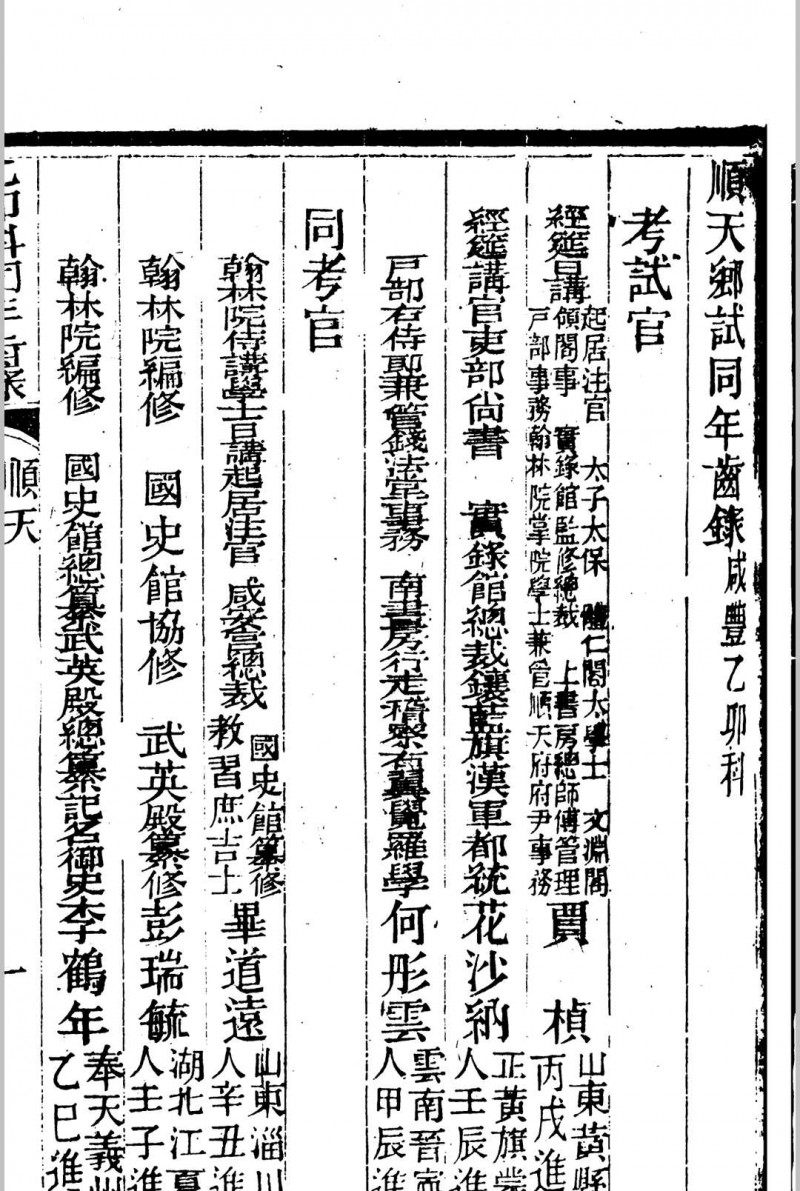 順天鄉試同年齒錄咸豐乙卯科
考試官
經筵日講起居注官 太子太保 體仁閣大學士 文淵閣
領閣事 實錄館監修總裁 上書房總師傅管理
戶部事務翰林院掌院學士兼管順天府府尹事務
賈 楨山東黃縣
丙戌進
經筵講官吏部尚書 實錄館總裁鑲藍旗漢軍都統花沙納正黃旗蒙
人壬辰進
戶部右侍郎兼管錢法堂事務 南書房行走稽察右翼覺羅學何彤雲雲南晉寧
人甲辰進
同考官
翰林院侍講學士日講起居注官 咸安宮總裁 國史館纂修
教習庶吉士
畢道遠山東淄川
人辛丑進
翰林院編修 國史館協修 武英殿纂修彭瑞毓湖北江夏
人壬子進
翰林院編修 國史館總纂武英殿總纂記名御史李鶴年奉天義州
乙巳進
順天
一